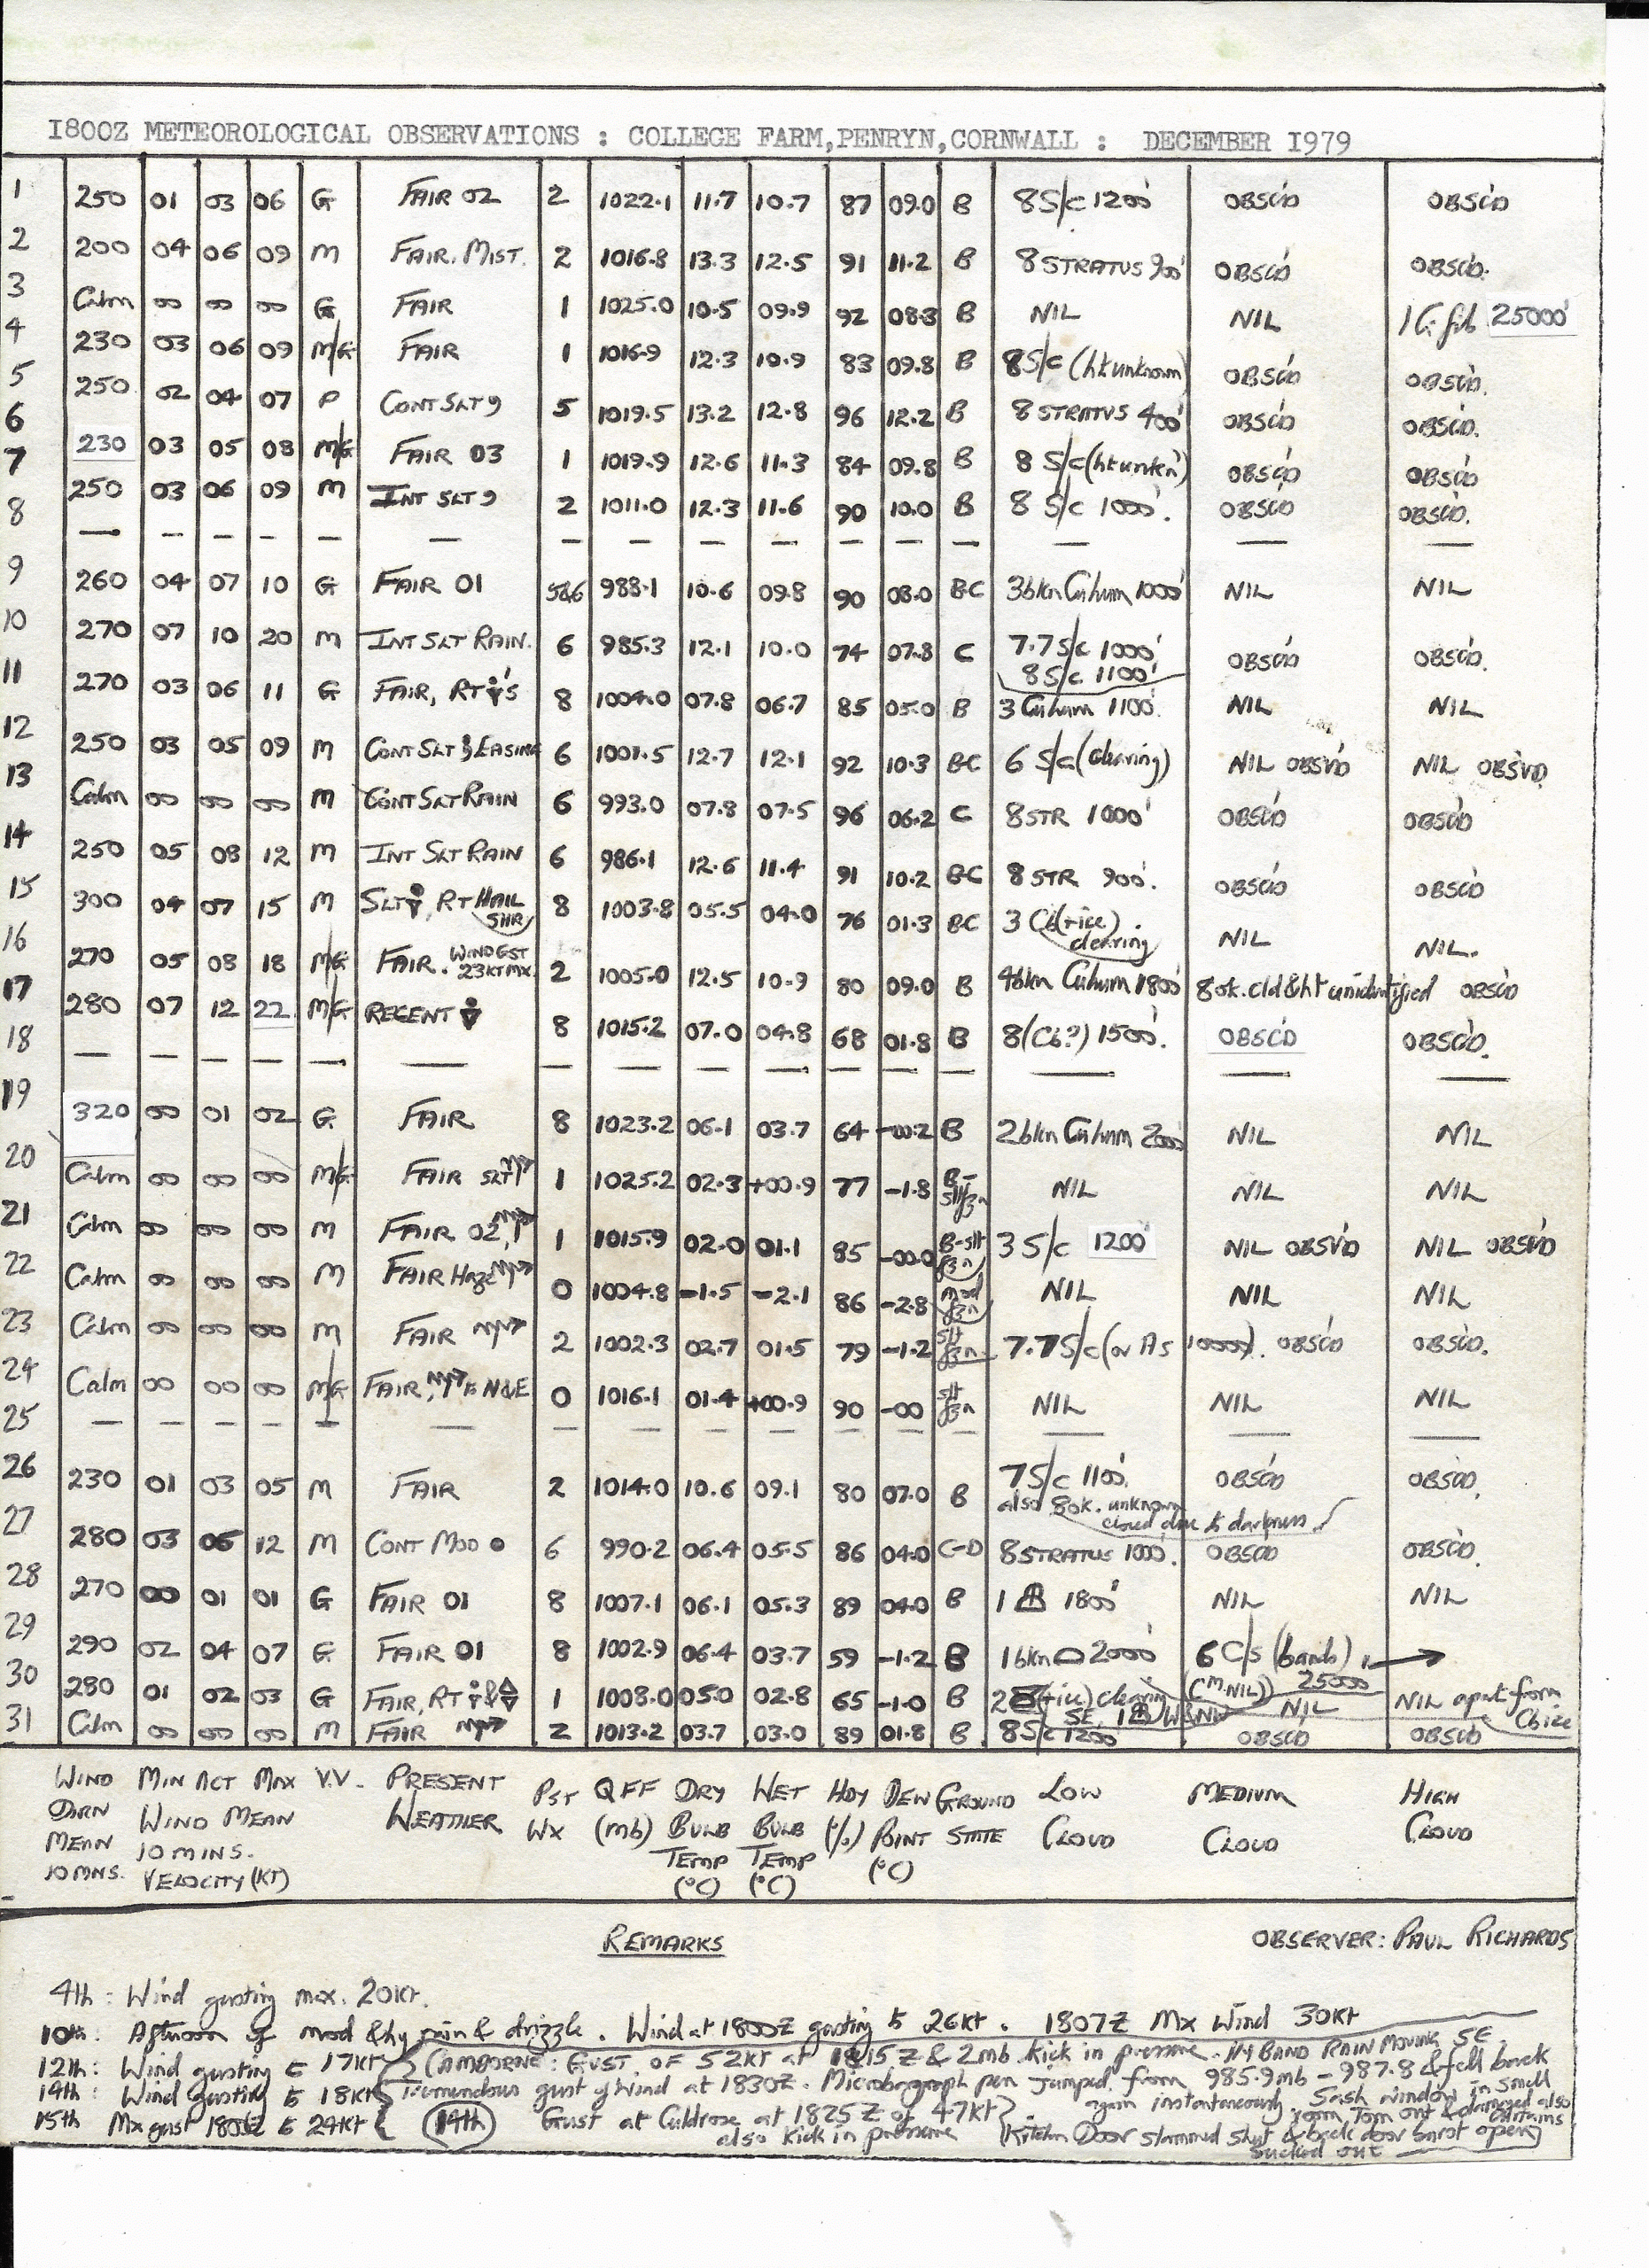 1800Z METEOROLOGICAL OBSERVATIONS : COLLEGE FARM,PENRYN,CORNWALL : DECEMBER 1979
1 250 01 03 06 G FAIR 02 2 1022.1 11.7 10.7 87 09.0 B 8S/c 1200' OBSC'D OBSC'D
2 200 04 06 09 M FAIR. MIST. 2 1016.8 13.3 12.5 91 11.2 B 8 STRATUS 900' OBSC'D OBSC'D.
3 Calm 00 00 00 G FAIR 1 1025.0 10.5 09.9 92 08.3 B NIL NIL 1 Ci fib 25000'
4 230 03 06 09 M/G FAIR 1 1016.9 12.3 10.9 83 09.8 B 8S/c (ht unknown) OBSC'D OBSC'D.
5 250 02 04 07 P CONT SLT 9 5 1019.5 13.2 12.8 96 12.2 B 8 STRATUS 400' OBSC'D OBSC'D.
6 230 03 05 08 M/G FAIR 03 1 1019.9 12.6 11.3 84 09.8 B 8 S/c (ht unkn') OBSC'D OBSC'D
7 250 03 06 09 M INT SLT 9 2 1011.0 12.3 11.6 90 10.0 B 8 S/c 1000'. OBSC'D OBSC'D.
8 — — — — — — — — — — — — — — — —
9 260 04 07 10 G FAIR 01 5&6 988.1 10.6 09.8 90 08.0 BC 3bkn Cuhum 1000' NIL NIL
10 270 07 10 20 M INT SLT RAIN. 6 985.3 12.1 10.0 74 07.8 C 7.7 S/c 1000' OBSC'D OBSC'D.
8 S/c 1100'
11 270 03 06 11 G FAIR, RT 's 8 1004.0 07.8 06.7 85 05.0 B 3 Cuhum 1100'. NIL NIL
12 250 03 05 09 M CONT SLT EASING 6 1001.5 12.7 12.1 92 10.3 BC 6 S/c (clearing) NIL OBSV'D NIL OBSV'D.
13 Calm 00 00 00 M CONT SLT RAIN 6 993.0 07.8 07.5 96 06.2 C 8 STR 1000' OBSC'D OBSC'D
14 250 05 08 12 M INT SLT RAIN 6 986.1 12.6 11.4 91 10.2 BC 8 STR 900'. OBSC'D OBSC'D
15 300 04 07 15 M SLT , RT HAIL SHR 8 1003.8 05.5 04.0 76 01.3 BC 3 Cb (+ice) clearing NIL NIL.
16 270 05 08 18 M/G FAIR. WIND GST 23KT MX. 2 1005.0 12.5 10.9 80 09.0 B 4bkn Cuhum 1800' 8 ok. cld & ht unidentified OBSC'D
17 280 07 12 22 M/G RECENT 8 1015.2 07.0 04.8 68 01.8 B 8 (Cb?) 1500'. OBSC'D OBSC'D.
18 — — — — — — — — — — — — — — — —
19 320 00 01 02 G FAIR 8 1023.2 06.1 03.7 64 -00.2 B 2bkn Cuhum 2000' NIL NIL
20 Calm 00 00 00 M/G FAIR SLT 1 1025.2 02.3 +00.9 77 -1.8 B- slt fzn NIL NIL NIL
21 Calm 00 00 00 M FAIR 02, 1 1015.9 02.0 01.1 85 -00.0 B-slt fzn 3 S/c 1200' NIL OBSV'D NIL OBSV'D
22 Calm 00 00 00 M FAIR Haze 0 1004.8 -1.5 -2.1 86 -2.8 mod fzn NIL NIL NIL
23 Calm 00 00 00 M FAIR 2 1002.3 02.7 01.5 79 -1.2 slt fzn. 7.7 S/c (or As 10000'). OBSC'D OBSC'D.
24 Calm 00 00 00 M/G FAIR, to N&E 0 1016.1 01.4 +00.9 90 -00 slt fzn NIL NIL NIL
25 — — — — — — — — — — — — — — — —
26 230 01 03 05 M FAIR 2 1014.0 10.6 09.1 80 07.0 B 7S/c 1100'. OBSC'D OBSC'D.
also 8 ok. unknown cloud due to darkness
27 280 03 06 12 M CONT MOD ● 6 990.2 06.4 05.5 86 04.0 C-D 8 STRATUS 1000'. OBSC'D OBSC'D.
28 270 00 01 01 G FAIR 01 8 1007.1 06.1 05.3 89 04.0 B 1 1800' NIL NIL
29 290 02 04 07 G FAIR 01 8 1002.9 06.4 03.7 59 -1.2 B 1bkn 2000' 6 C/s (bands), →
30 280 01 02 03 G FAIR, RT & 1 1008.0 05.0 02.8 65 -1.0 B 2 (+ice) clearing SE, 1 W&NW (CM. NIL) 25000' NIL NIL apart from Cb ice
31 Calm 00 00 00 M FAIR 2 1013.2 03.7 03.0 89 01.8 B 8Sc 1200' OBSC'D OBSC'D
WIND MIN ACT MAX V.V. PRESENT PST QFF DRY WET HDY DEW GROUND LOW MEDIUM HIGH
DIRN WIND MEAN WEATHER WX (mb) BULB BULB (%) POINT STATE CLOUD CLOUD CLOUD
MEAN 10 MINS. TEMP TEMP (°C)
10 MNS. VELOCITY (KT) (°C) (°C)
REMARKS OBSERVER: PAUL RICHARDS
4th: Wind gusting max. 20Kt.
10th: Afternoon of mod & hy rain & drizzle. Wind at 1800Z gusting to 26Kt. 1807Z Mx Wind 30Kt
12th: Wind gusting to 17Kt (CAMBORNE: GUST OF 52KT at 1815Z & 2mb kick in pressure. HY BAND RAIN MOVING SE.
14th: Wind gusting to 18Kt Tremendous gust of wind at 1830Z. Microbarograph pen jumped from 985.9mb - 987.8 & fell back again instantaneously. Sash window in small room Torn out & damaged also curtains sucked out
15th Mx gust 1800Z to 24Kt (14th) Gust at Culdrose at 1825Z of 47Kt also kick in pressure (Kitchen Door slammed shut & back door burst open)